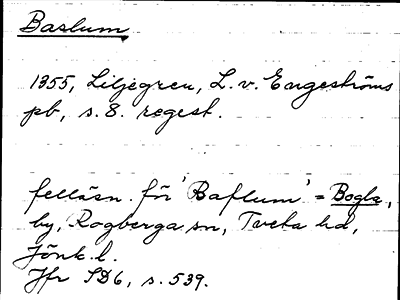 Baslum
1355, Liljegren, L. v. Engeströms
pb, s. 8. regest.
felläsn. för 'Baflum' = Bogla,
by, Rogberga sn, Tveta hd,
Jönk. l.
Jfr SD6, s. 539.